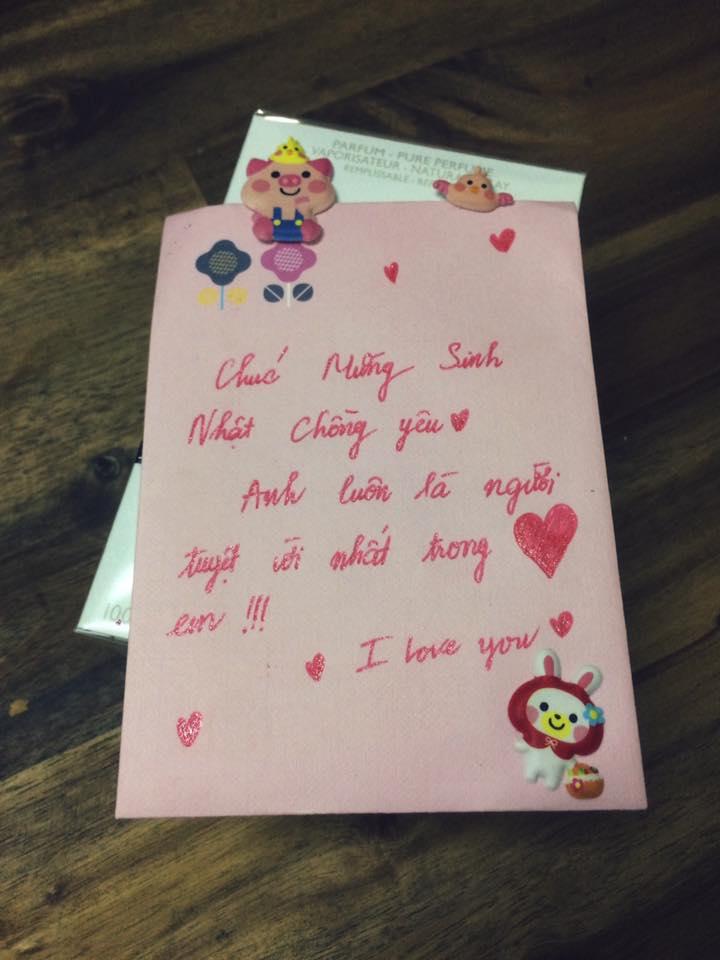 PARFUM - PURE PERFUME
VAPORISATEUR - NATURAL SPRAY
REMPLISSABLE -
Chúc Mừng Sinh
Nhật Chồng yêu
Anh luôn là người
tuyệt vời nhất trong
em !!!
I love you
100